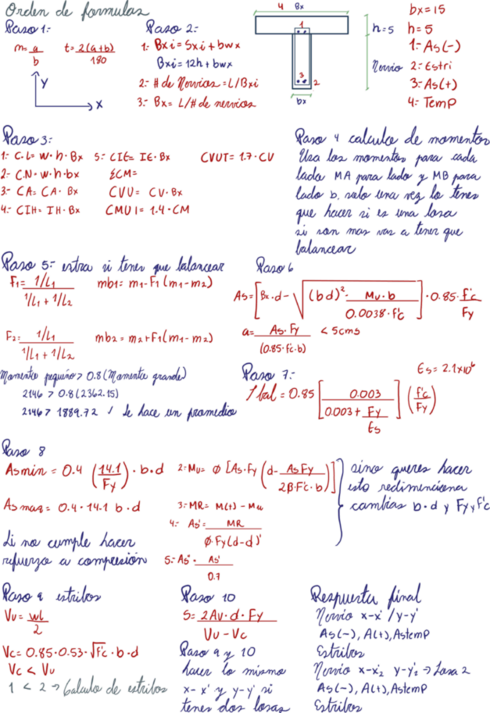 Orden de formulas
Paso 1:
m= a/b   t= 2(a+b)/180
Y
X
Paso 2:
1- Bxi= 5xi + bwx
Bxi= 12h + bwx
2- # de Nervios = L/Bxi
3- Bx= L/# de nervios
4 Bx
1
2
3
bx
h=5
bx=15
h=5
1- As(-)
Nervio 2- Estri
3- As(+)
4- Temp
Paso 3:
1- C.L= W·h·Bx   5- CIE= IE·Bx   CVUT= 1.7·CV
2- C.N= W·h·bx   ECM=
3- CA= CA·Bx   CVU= CV·Bx
4- CIH= IH·Bx   CMUI= 1.4·CM
Paso 4 calculo de momentos
Usa los momentos para cada
lado MA para lado y MB para
lado b, solo una vez lo tenes
que hacer si es una losa
si son mas vas a tener que
balancear
Paso 5- extra si tenes que balancear
F1= 1/L1 / 1/L1 + 1/L2   mb1= m1-F1(m1-m2)
F2= 1/L1 / 1/L1 + 1/L2   mb2= m2+F1(m1-m2)
Momento pequiño > 0.8(Momento grande)
2146 > 0.8(2362.15)
2146 > 1889.72 / Se hace un promedio
Paso 6
As= [Bx·d - √((bd)² - Mu·b / 0.0038·f'c)] · 0.85·f'c / Fy
a= As·Fy / (0.85·f'c·b) < 5cms
Paso 7:
Es= 2.1x10⁶
fbal= 0.85 [0.003 / 0.003 + Fy/Es] (f'c/Fy)
Paso 8
Asmin= 0.4 (14.1/Fy)·b·d   2- Mu= Ø [As·Fy (d - AsFy / 2β·f'c·b)]
Asmax= 0.4·14.1 b·d   3- MR= M(+) - Mu
4- As'= MR / Ø·Fy(d-d')
Si no cumple hacer
refuerzo a compresión   5- As'= As' / 0.7
sino queres hacer
esto redimenciona
cambias b·d y Fy y f'c
Paso 9 estribos
Vu= wL / 2
Vc= 0.85·0.53·√f'c·b·d
Vc < Vu
1 < 2 → Calculo de estribos
Paso 10
S= 2Av·d·Fy / Vu-Vc
Paso 9 y 10
hacer lo mismo
x-x' y y-y' si
tenes dos losas
Respuesta final
Nervio x-x' / y-y'
As(-), A(+), Astemp
Estribos
Nervio x-x'2 y-y'2 → Losa 2
As(-), A(+), Astemp
Estribos